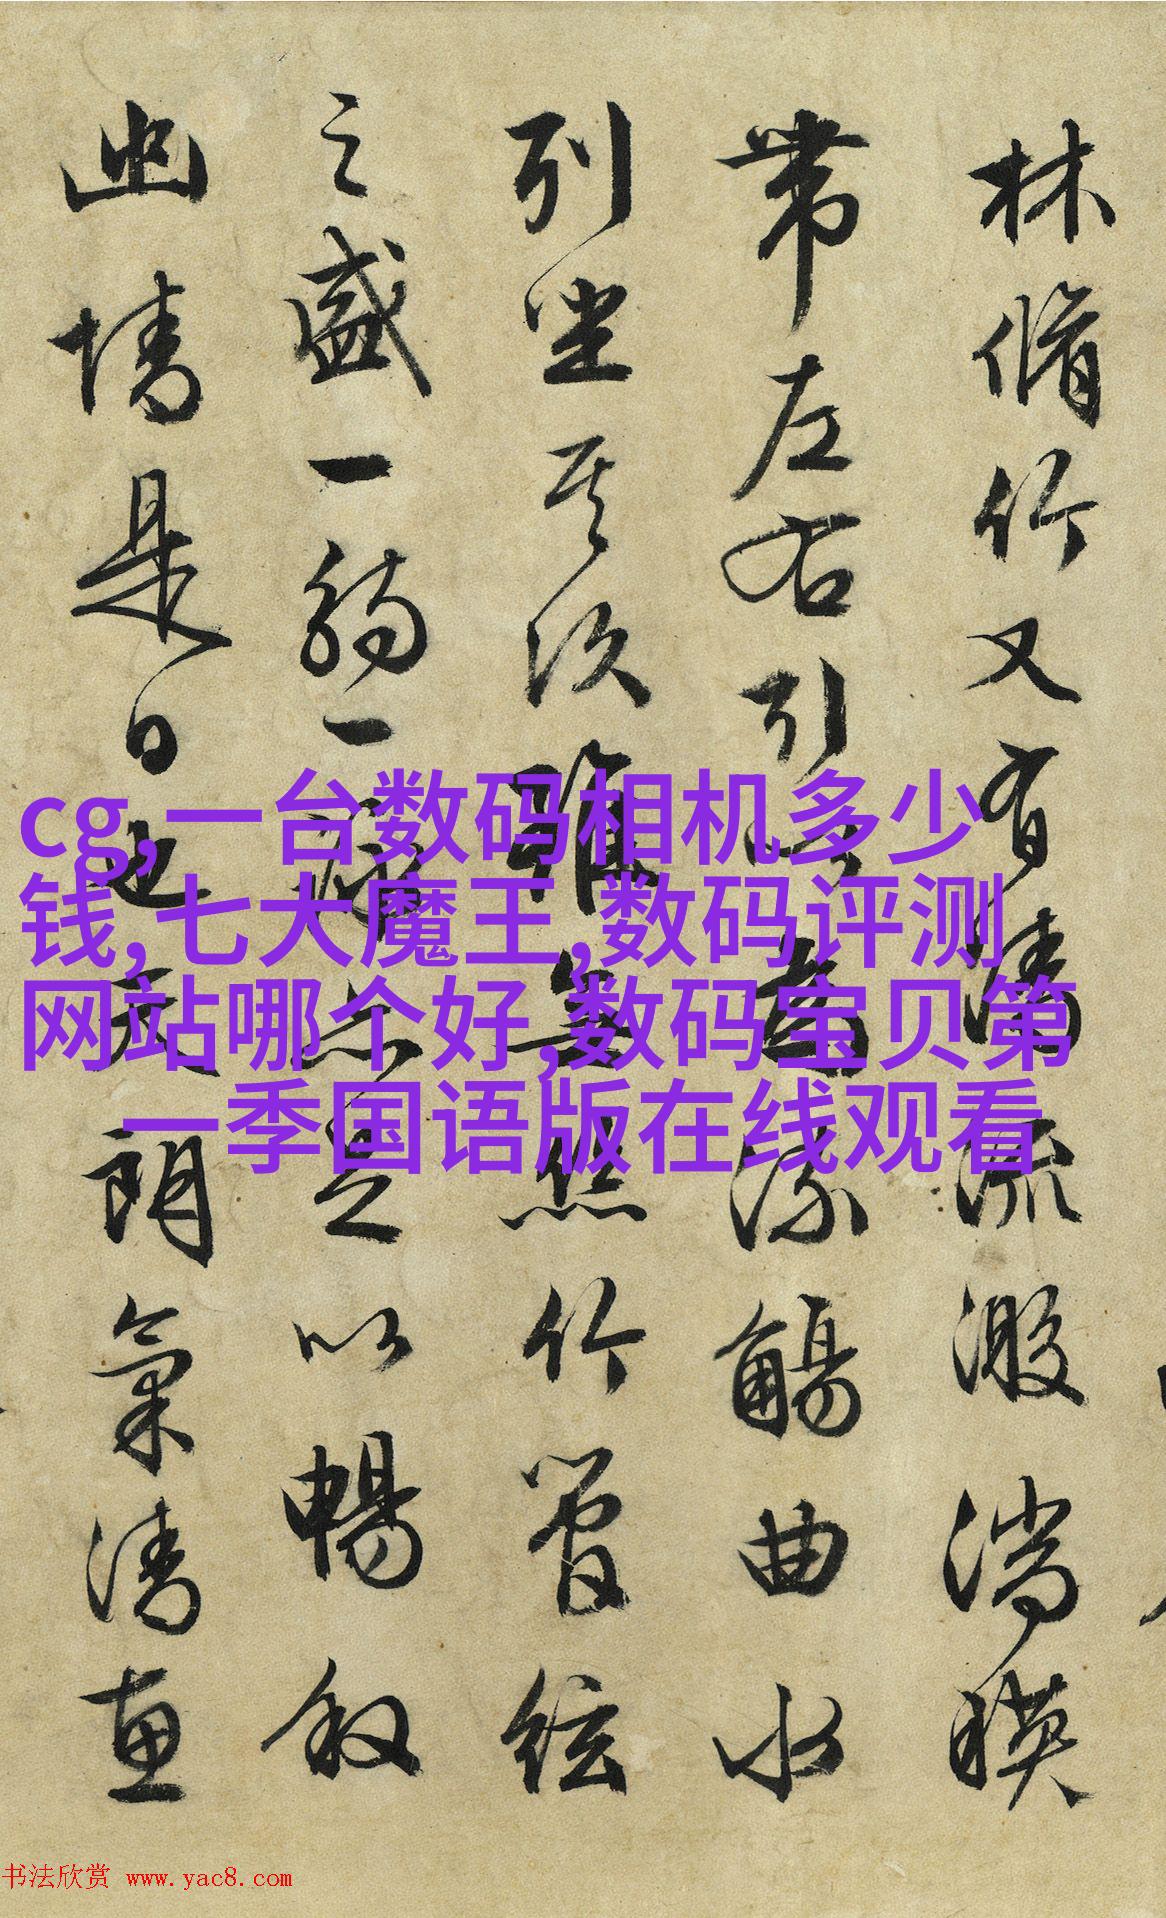 林脩竹又有清流激湍暎
帶左右引以為流觴曲水
列坐其次雖無絲竹管絃
之盛一觴一詠亦足以暢叙
幽情是日也天朗氣清惠
cg,一台数码相机多少
钱,七大魔王,数码评测
网站哪个好,数码宝贝第
一季国语版在线观看
书法欣赏 www.yac8.com